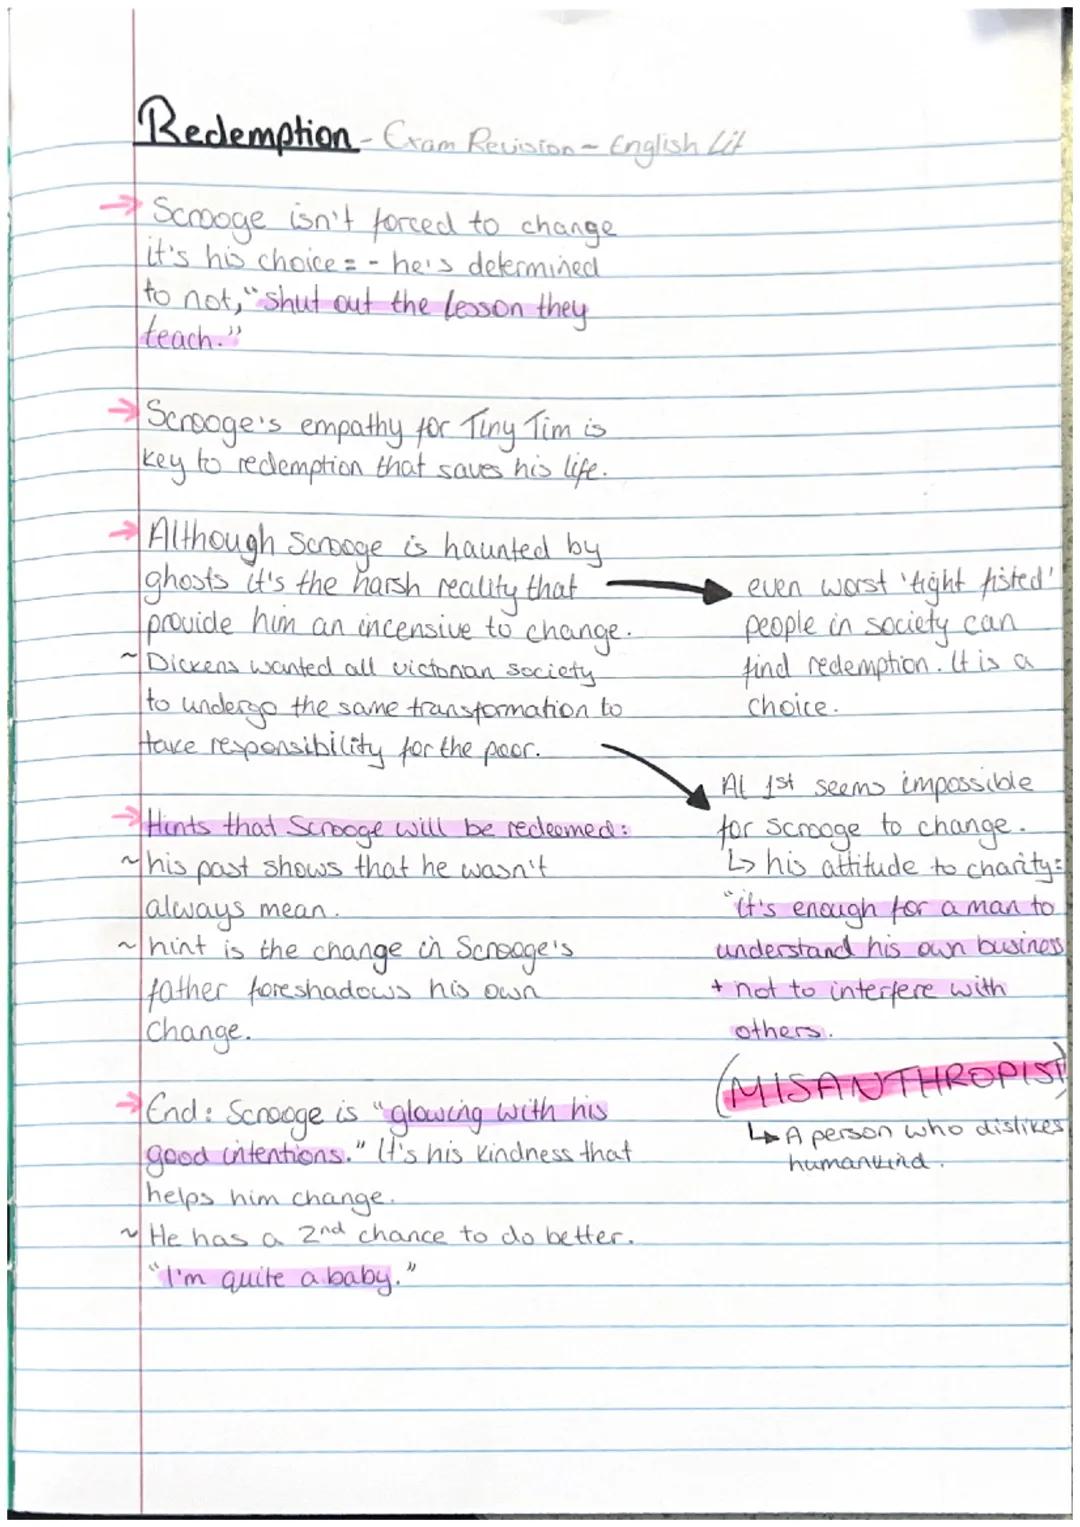 Redemption - Exam Revision - English Lit
→ Scrooge isn't forced to change
it's his choice = - he's determined
to not, "shut out the lesson they
teach."
→ Scrooge's empathy for Tiny Tim is
key to redemption that saves his life.
→ Although Scrooge is haunted by
ghosts it's the harsh reality that
provide him an incensive to change.
~ Dickens wanted all victorian society
to undergo the same transformation to
take responsibility for the poor.
even worst 'tight fisted'
people in society can
find redemption. It is a
choice.
At 1st seems impossible
for scrooge to change.
↳ his attitude to charity:
"it's enough for a man to
understand his own business
+ not to interfere with
others.
(MISANTHROPIST)
↳ A person who dislikes
humankind.
→ Hints that Scrooge will be redeemed:
~ his past shows that he wasn't
always mean.
~ hint is the change in Scrooge's
father foreshadows his own
Change.
→ End: Scrooge is "glowing with his
good intentions." It's his kindness that
helps him change.
~ He has a 2nd chance to do better.
"I'm quite a baby."